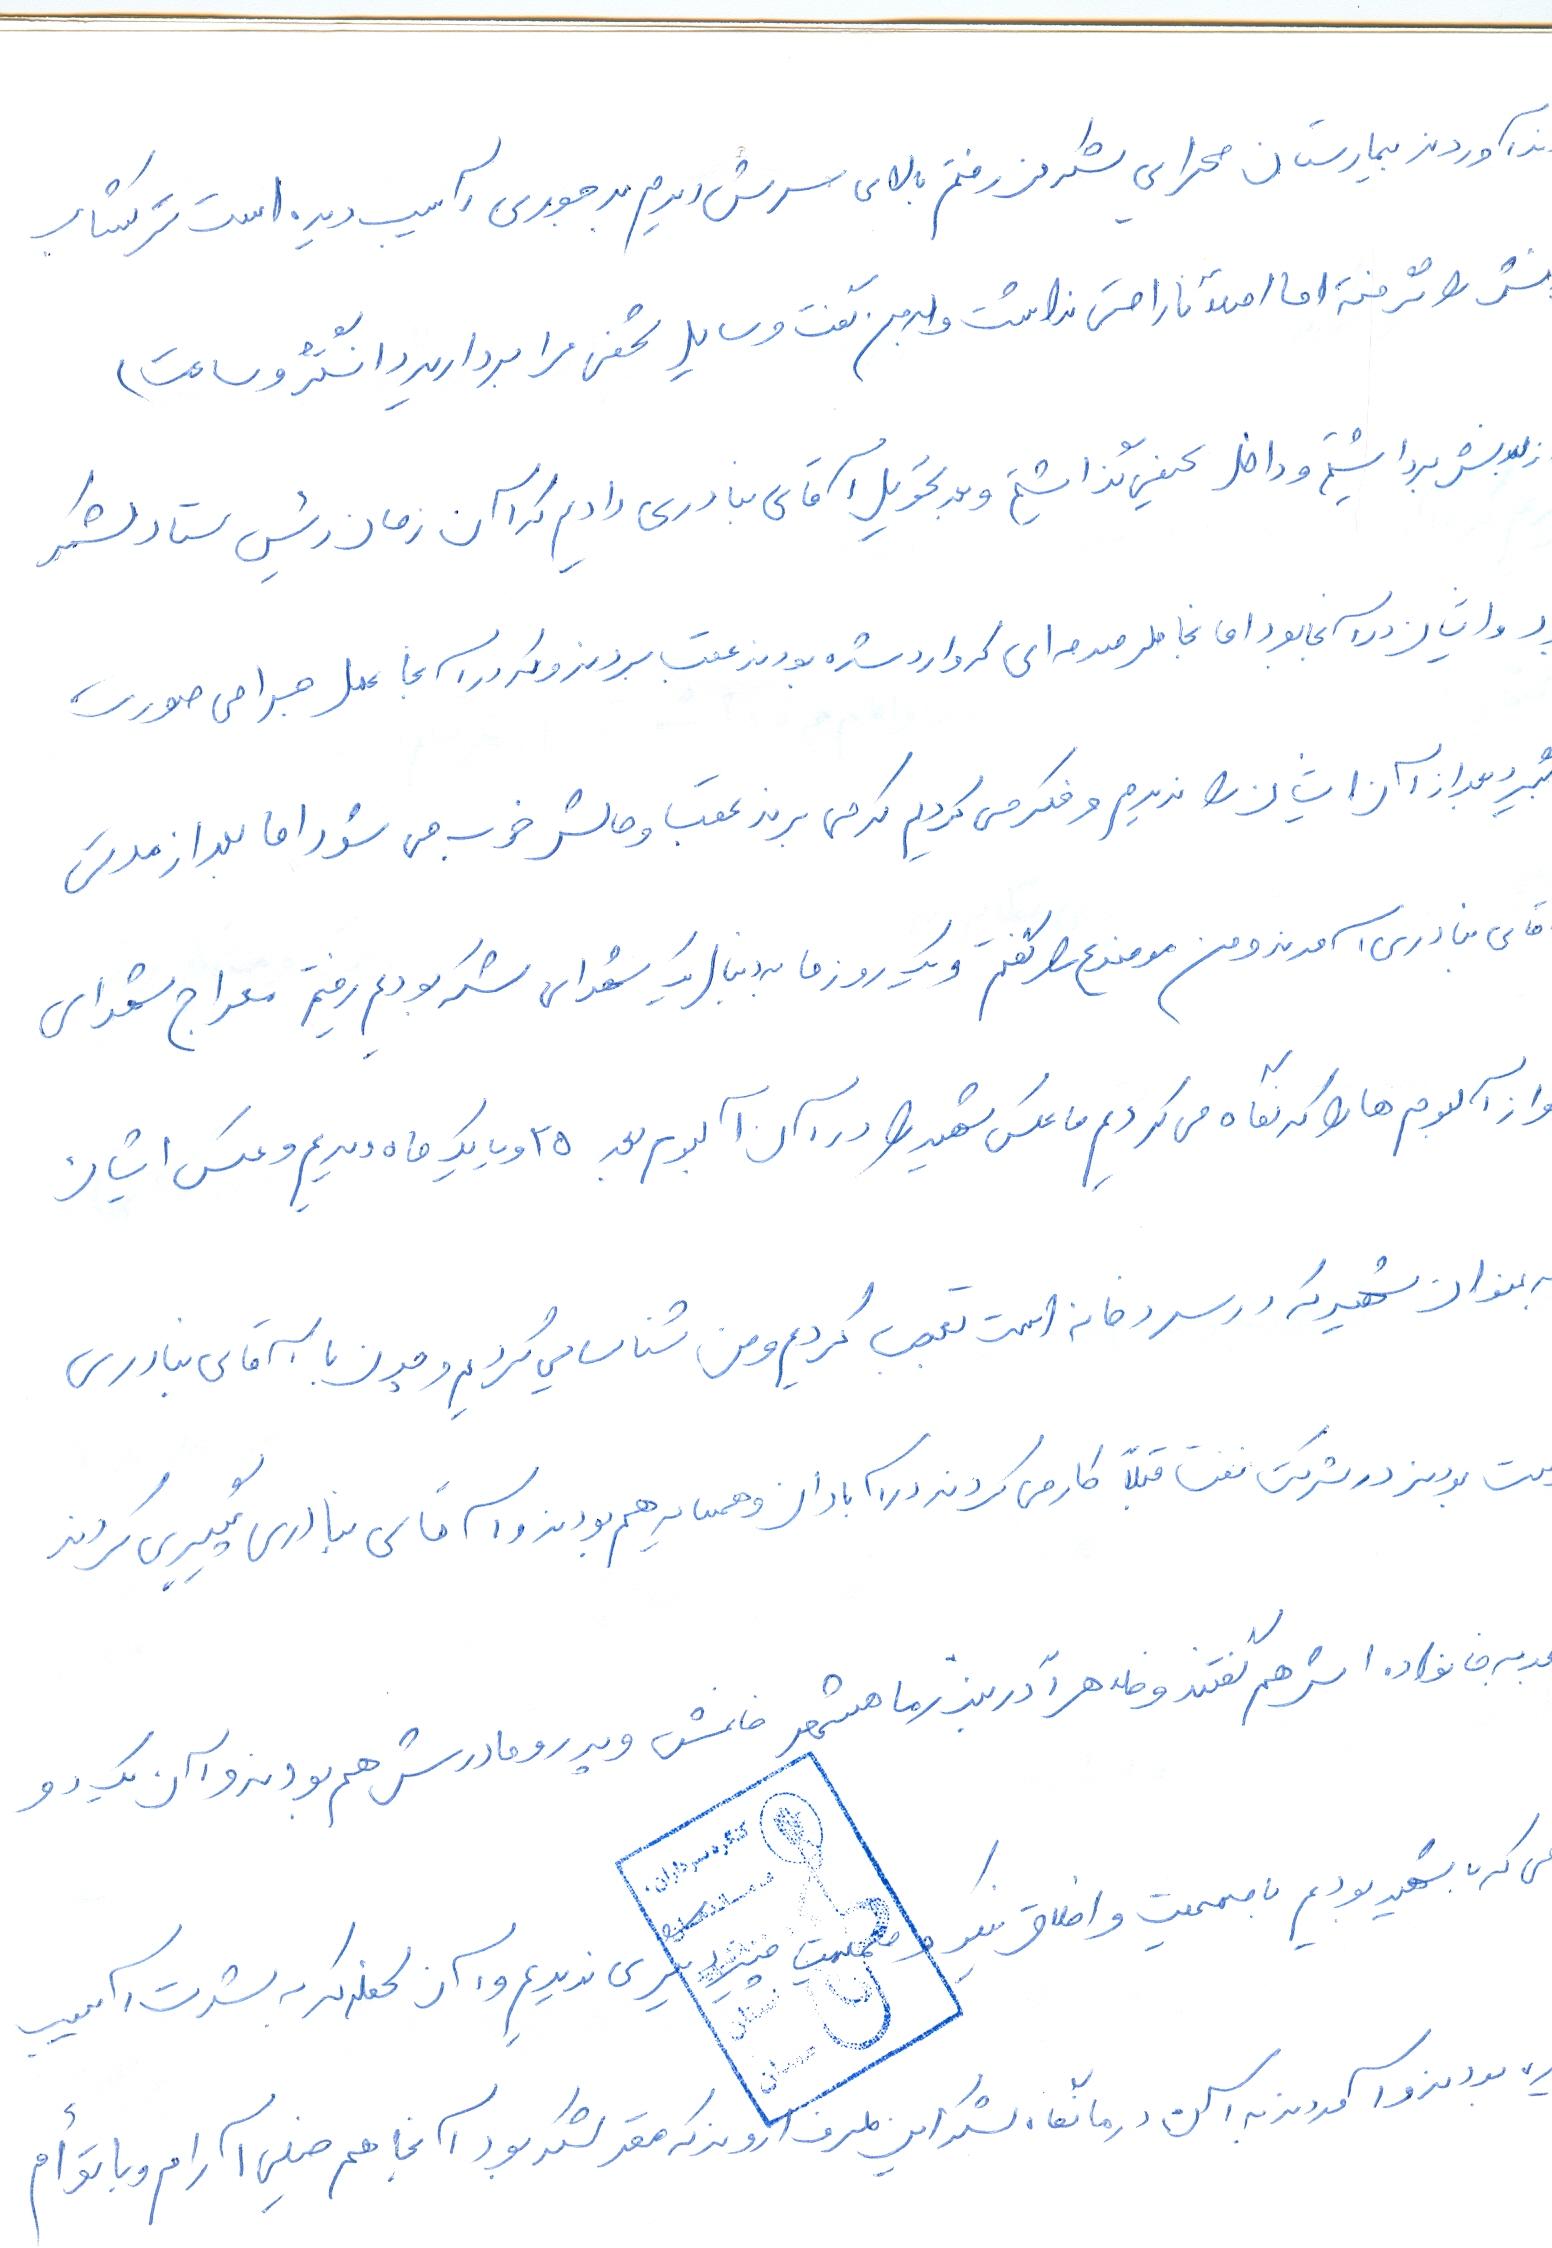 آوردند بیمارستان صحرایی لشکر من رفتم بالای سرش دیدم بدجوری آسیب دیده است ترکش
را گرفته اما اصلاً ناراحتی نداشت و به من گفت وسایل شخصی مرا بردارید (انگشتر و ساعت)
برداشتیم و داخل کیفی گذاشتیم و بعد تحویل آقای بنادری دادیم که آن زمان رئیس ستاد لشکر
و ایشان در آنجا بود اما بخاطر صدمه ای که وارد شده بود عقب بردند و که در آنجا عمل جراحی صورت
بعد از آن ایشان را ندیدم و فکر می کردیم که می برند عقب و حالش خوب می شود اما بعد از مدتی
آقای بنادری آمدند و من موضوع را گفتم و یک روز ما به دنبال یک شهدای لشکر بودیم رفتیم معراج شهدای
آلبوم ها را که نگاه می کردیم ما عکس شهید را در آن آلبوم بعد ۲۵ و یا یک ماه دیدیم و عکس ایشان
به عنوان شهید که در سردخانه است تعجب کردیم و من شناسایی کردیم و چون با آقای بنادری
بودند در شرکت نفت قبلاً کار می کردند در آبادان و همسایه هم بودند و آقای بنادری پیگیری کردند
به خانواده اش هم گفتند و ظاهراً در بندر ماهشهر خانمش و پدر و مادرش هم بودند و آن یک دو
که با شهید بودیم با صمیمیت و اخلاق نیکو و صمیمیت چیز دیگری ندیدیم و آن لحظه که به شدت آسیب
بودند و آمدند به آن درمانگاه لشکر این طرف اروند که مقر لشکر بود آنجا هم خیلی آرام و با توأم
کنگره سرداران